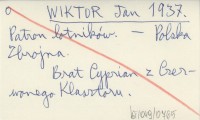 WIKTOR Jan 1937.
Patron lotników. — Polska
Zbrojna.
Brat Cyprian z Czer-
wonego Klasztoru.